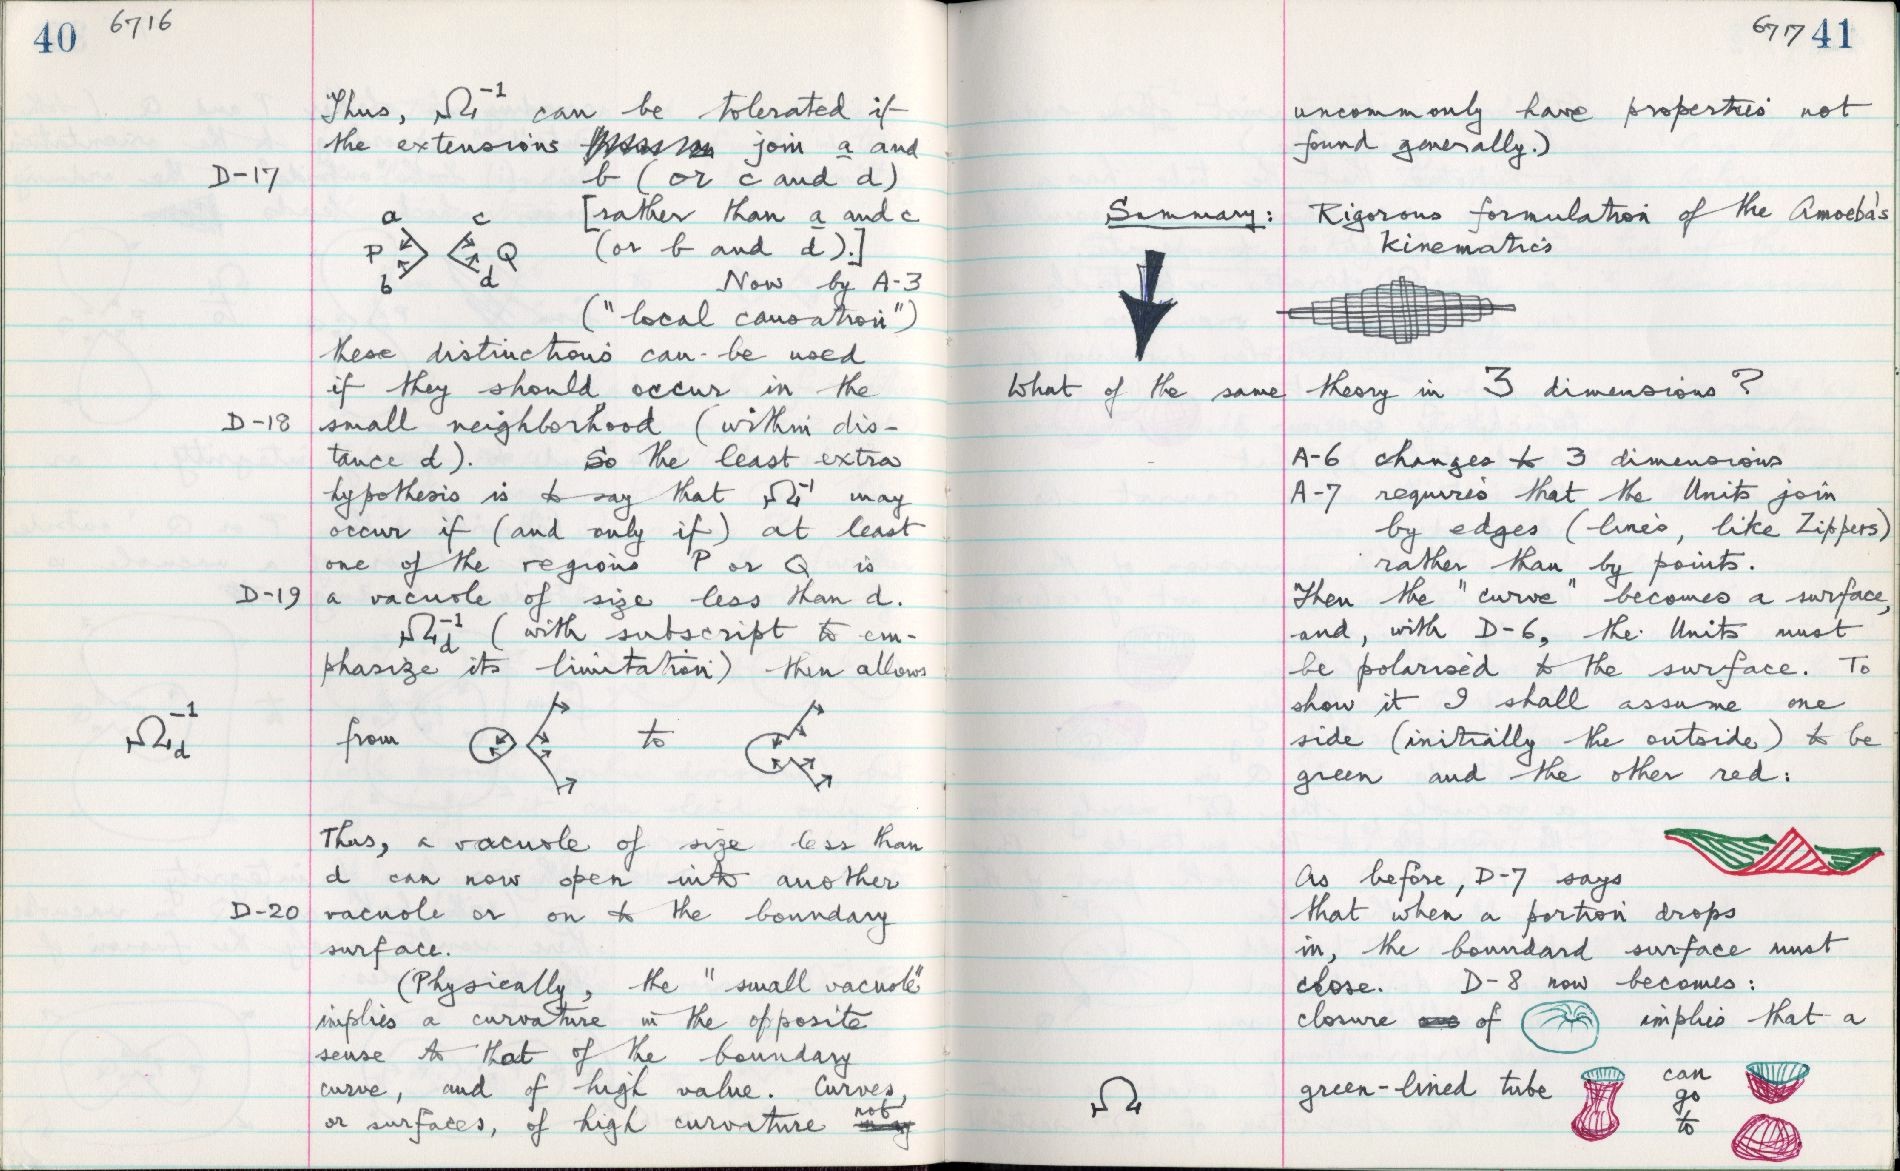 40 6716
Thus, Ω⁻¹ can be tolerated if
the extensions join a and
D-17 b (or c and d)
a c [rather than a and c
P Q (or b and d).]
b d Now by A-3
("local causation")
these distinctions can be used
if they should occur in the
D-18 small neighborhood (within dis-
tance d). So the least extra
hypothesis is to say that Ω⁻¹ may
occur if (and only if) at least
one of the regions P or Q is
D-19 a vacuole of size less than d.
Ω_d⁻¹ (with subscript to em-
phasize its limitation) then allows
Ω_d⁻¹ from to
Thus, a vacuole of size less than
d can now open into another
D-20 vacuole or on to the boundary
surface.
(Physically, the "small vacuole"
implies a curvature in the opposite
sense to that of the boundary
curve, and of high value. Curves,
or surfaces, of high curvature not
6717 41
uncommonly have properties not
found generally.)
Summary: Rigorous formulation of the Amoeba's
Kinematics
What of the same theory in 3 dimensions?
A-6 changes to 3 dimensions
A-7 requires that the Units join
by edges (lines, like Zippers)
rather than by points.
Then the "curve" becomes a surface,
and, with D-6, the Units must
be polarised to the surface. To
show it I shall assume one
side (initially the outside) to be
green and the other red:
As before, D-7 says
that when a portion drops
in, the boundard surface must
close. D-8 now becomes:
closure of implies that a
Ω green-lined tube can
go
to